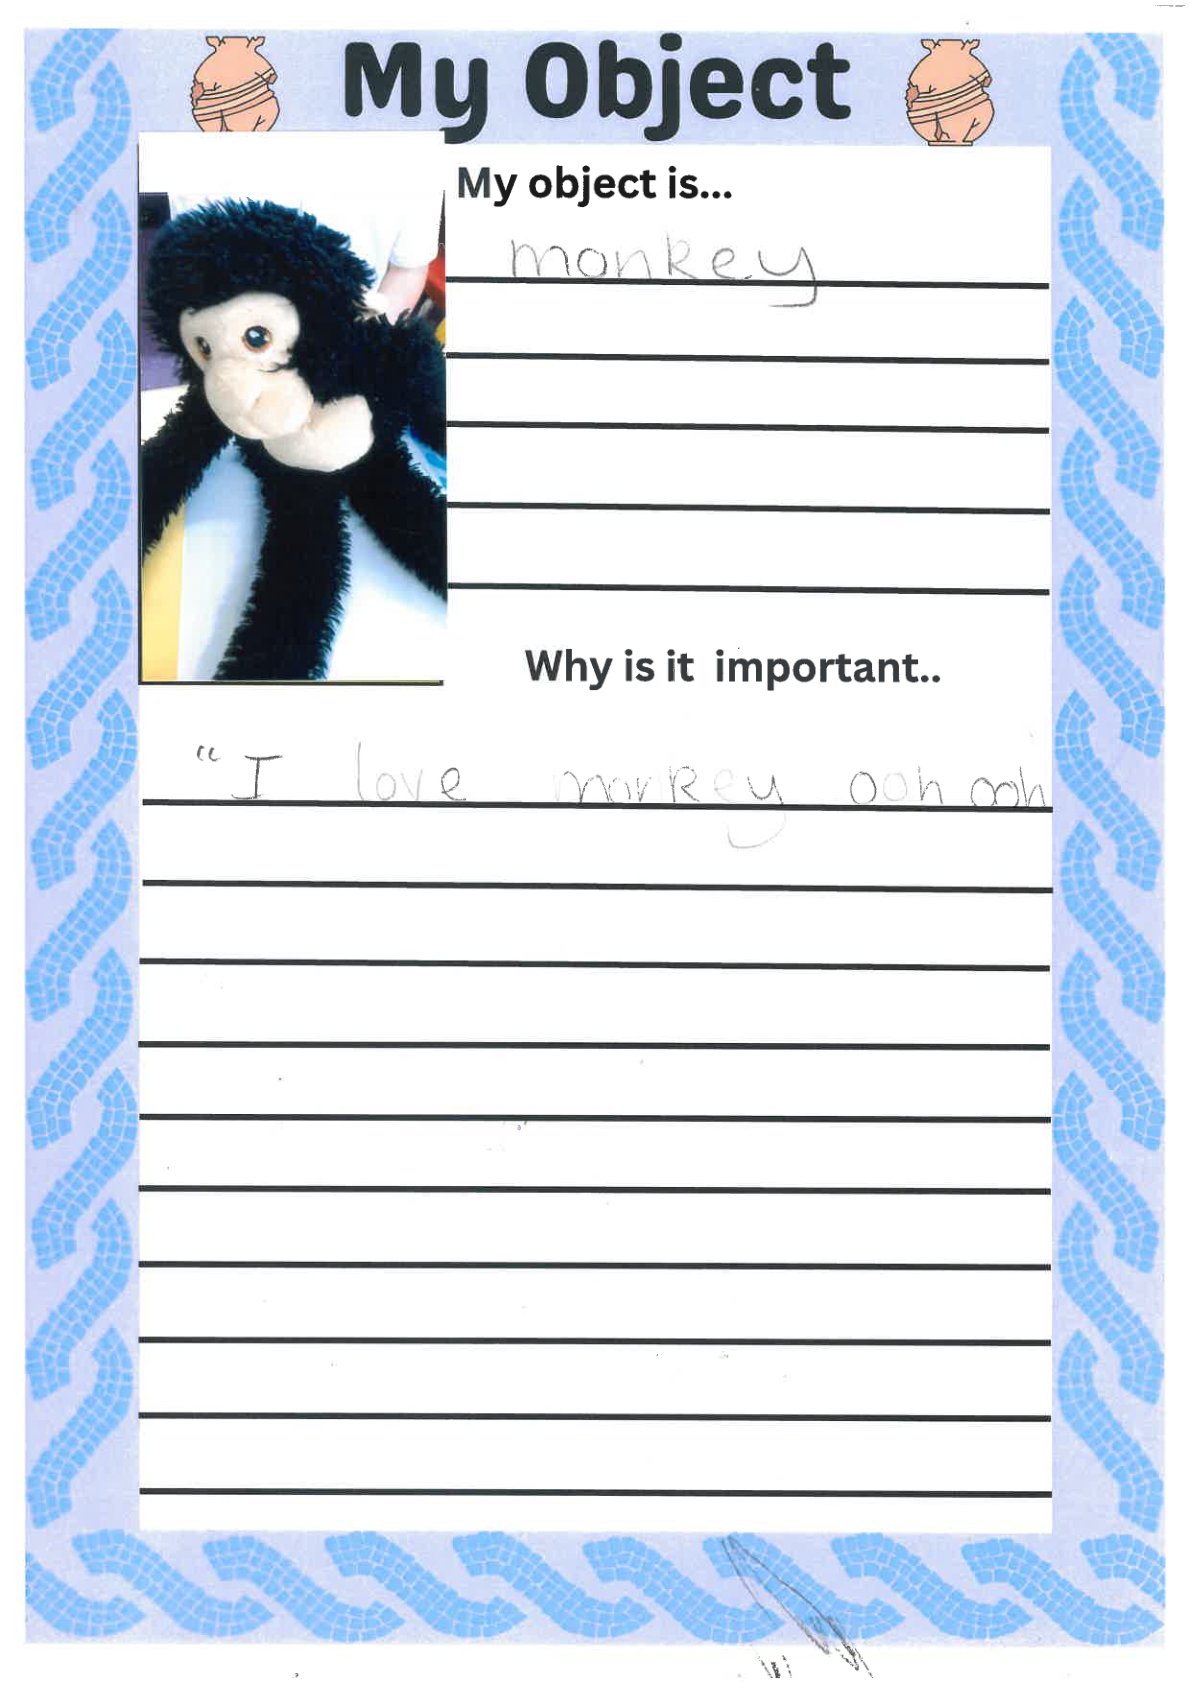 My Object
My object is...
monkey
Why is it important..
“I love monkey ooh ooh